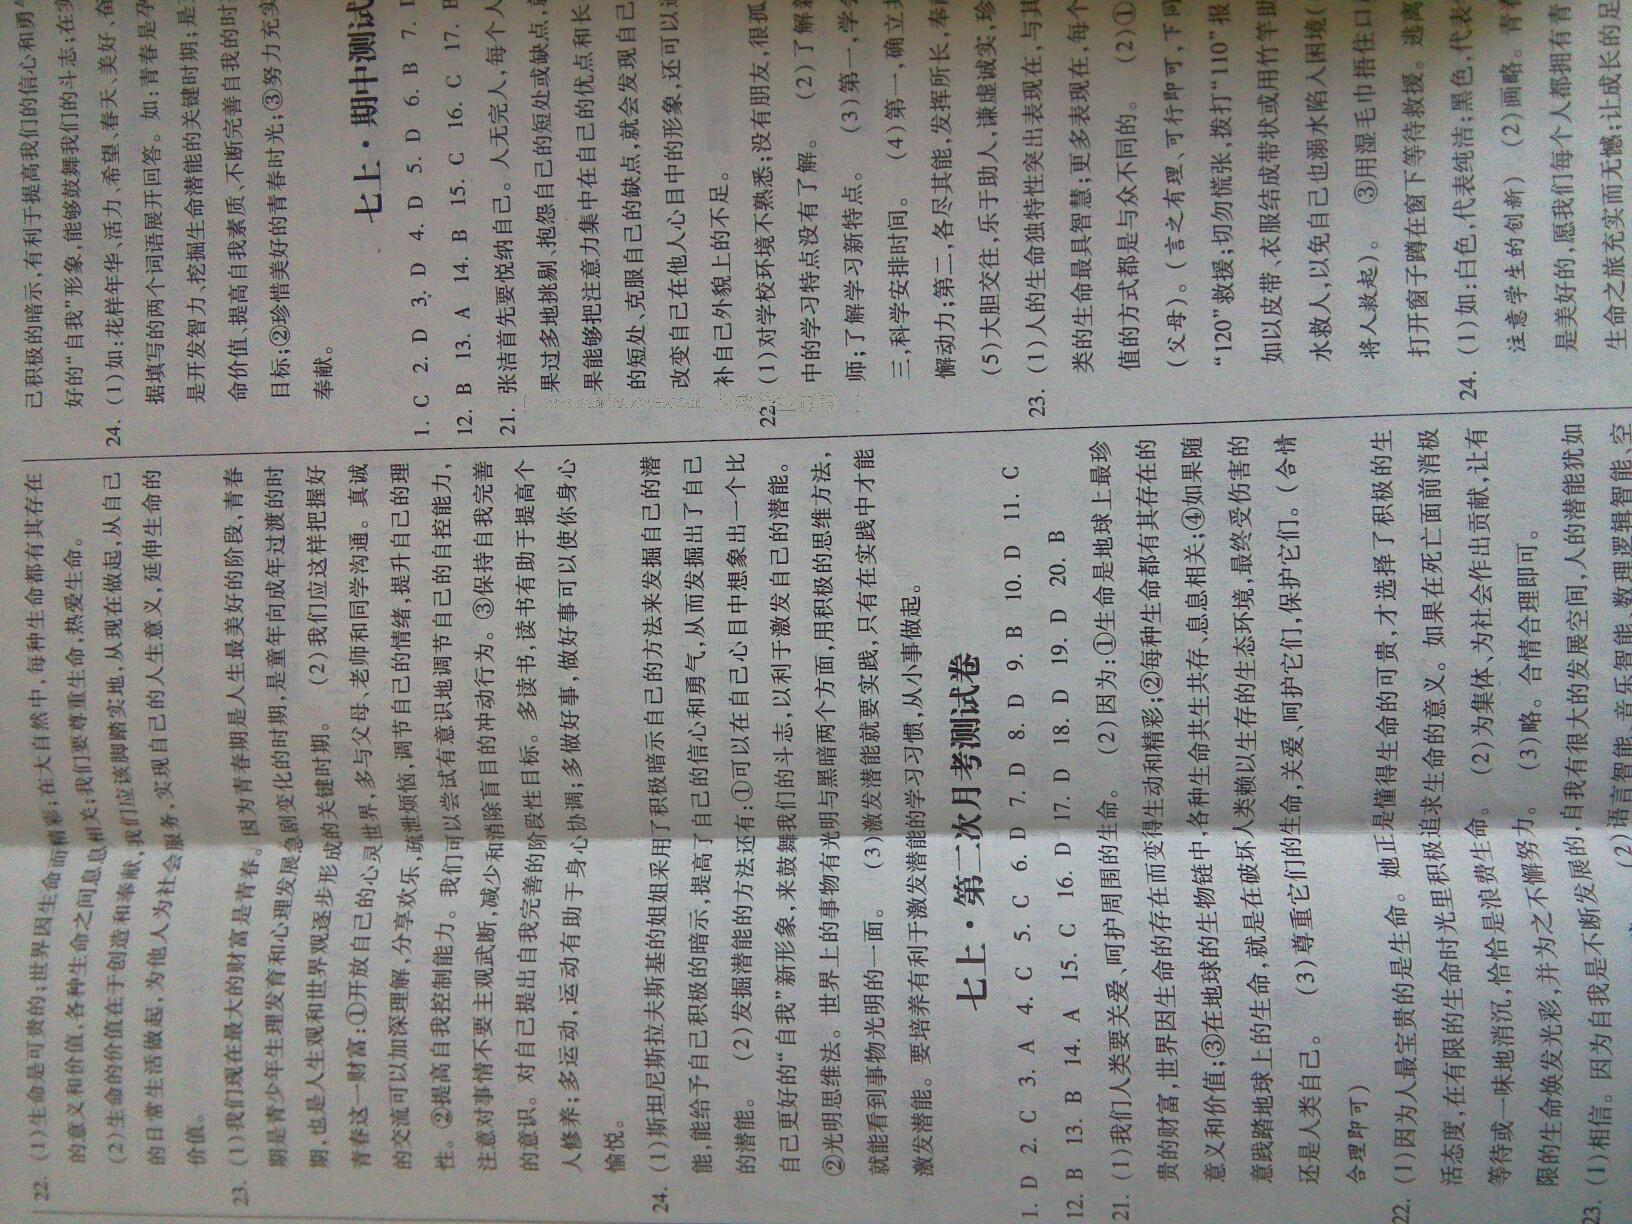 22. (1)生命是可贵的;世界因生命而精彩;在大自然中,每种生命都有其存在
的意义和价值,各种生命之间息息相关;我们要尊重生命,热爱生命。
(2)生命的价值在于创造和奉献,我们应该脚踏实地,从现在做起,从自己
的日常生活做起,为他人为社会服务,实现自己的人生意义,延伸生命的
价值。
23. (1)我们现在最大的财富是青春。因为青春期是人生最美好的阶段,青春
期是青少年生理发育和心理发展急剧变化的时期,是童年向成年过渡的时
期,也是人生观和世界观逐步形成的关键时期。 (2)我们应这样把握好
青春这一财富:①开放自己的心灵世界,多与父母、老师和同学沟通。真诚
的交流可以加深理解,分享欢乐,疏泄烦恼,调节自己的情绪,提升自己的理
性。②提高自我控制能力。我们可以尝试有意识地调节自己的自控能力,
注意对事情不要主观武断,减少和消除盲目的冲动行为。③保持自我完善
的意识。对自己提出自我完善的阶段性目标。多读书,读书有助于提高个
人修养;多运动,运动有助于身心协调;多做好事,做好事可以使你身心
愉悦。
24. (1)斯坦尼斯拉夫斯基的姐姐采用了积极暗示自己的方法来发掘自己的潜
能,能给予自己积极的暗示,提高了自己的信心和勇气,从而发掘出了自己
的潜能。 (2)发掘潜能的方法还有:①可以在自己心目中想象出一个比
自己更好的“自我”新形象,来鼓舞我们的斗志,以利于激发自己的潜能。
②光明思维法。世界上的事物有光明与黑暗两个方面,用积极的思维方法,
就能看到事物光明的一面。 (3)激发潜能就要实践,只有在实践中才能
激发潜能。要培养有利于激发潜能的学习习惯,从小事做起。
七上·第二次月考测试卷
1. D 2. C 3. A 4. C 5. C 6. D 7. D 8. D 9. B 10. D 11. C
12. B 13. B 14. A 15. C 16. D 17. D 18. D 19. D 20. B
21. (1)我们人类要关爱、呵护周围的生命。 (2)因为:①生命是地球上最珍
贵的财富,世界因生命的存在而变得生动和精彩;②每种生命都有其存在的
意义和价值;③在地球的生物链中,各种生命共生共存、息息相关;④如果随
意践踏地球上的生命,就是在破坏人类赖以生存的生态环境,最终受伤害的
还是人类自己。 (3)尊重它们的生命,关爱、呵护它们,保护它们。(合情
合理即可)
22. (1)因为人最宝贵的是生命。她正是懂得生命的可贵,才选择了积极的生
活态度,在有限的生命时光里积极追求生命的意义。如果在死亡面前消极
等待或一味地消沉,恰恰是浪费生命。 (2)为集体、为社会作出贡献,让有
限的生命焕发光彩,并为之不懈努力。 (3)略。合情合理即可。
23. (1)相信。因为自我是不断发展的,自我有很大的发展空间,人的潜能犹如
(2)语言智能、音乐智能、数理逻辑智能、空
己积极的暗示,有利于提高我们的信心和勇气
好的“自我”形象,能够鼓舞我们的斗志;在实
24. (1)如:花样年华、活力、希望、春天、美好、奋
据填写的两个词语展开回答。如:青春是孕
是开发智力、挖掘生命潜能的关键时期;是
命价值、提高自我素质、不断完善自我的时
目标;②珍惜美好的青春时光;③努力充实
奉献。
七上·期中测试
1. C 2. D 3. D 4. D 5. D 6. B 7.
12. B 13. A 14. B 15. C 16. C 17. B
21. 张洁首先要悦纳自己。人无完人,每个人
果过多地挑剔、抱怨自己的短处或缺点,
果能够把注意力集中在自己的优点和长
的短处、克服自己的缺点,就会发现自己
改变自己在他人心目中的形象,还可以
补自己外貌上的不足。
22. (1)对学校环境不熟悉;没有朋友,很孤
中的学习特点没有了解。 (2)了解
师;了解学习新特点。 (3)第一,学会
三,科学安排时间。 (4)第一,确立共
懈动力;第二,各尽其能,发挥所长,奉献
(5)大胆交往,乐于助人,谦虚诚实,珍
23. (1)人的生命独特性突出表现在,与其
类的生命最具智慧;更多表现在,每个
值的方式都是与众不同的。 (2)①
(父母)。(言之有理、可行即可,下同
“120”救援;切勿慌张,拨打“110”报
如以皮带、衣服结成带状或用竹竿助
水救人,以免自己也溺水陷入困境(
将人救起)。 ③用湿毛巾捂住口
打开窗子蹲在窗下等待救援。逃离
24. (1)如:白色,代表纯洁;黑色,代表
注意学生的创新) (2)画略。青春
是美好的,愿我们每个人都拥有青
生命之旅充实而无憾;让成长的足